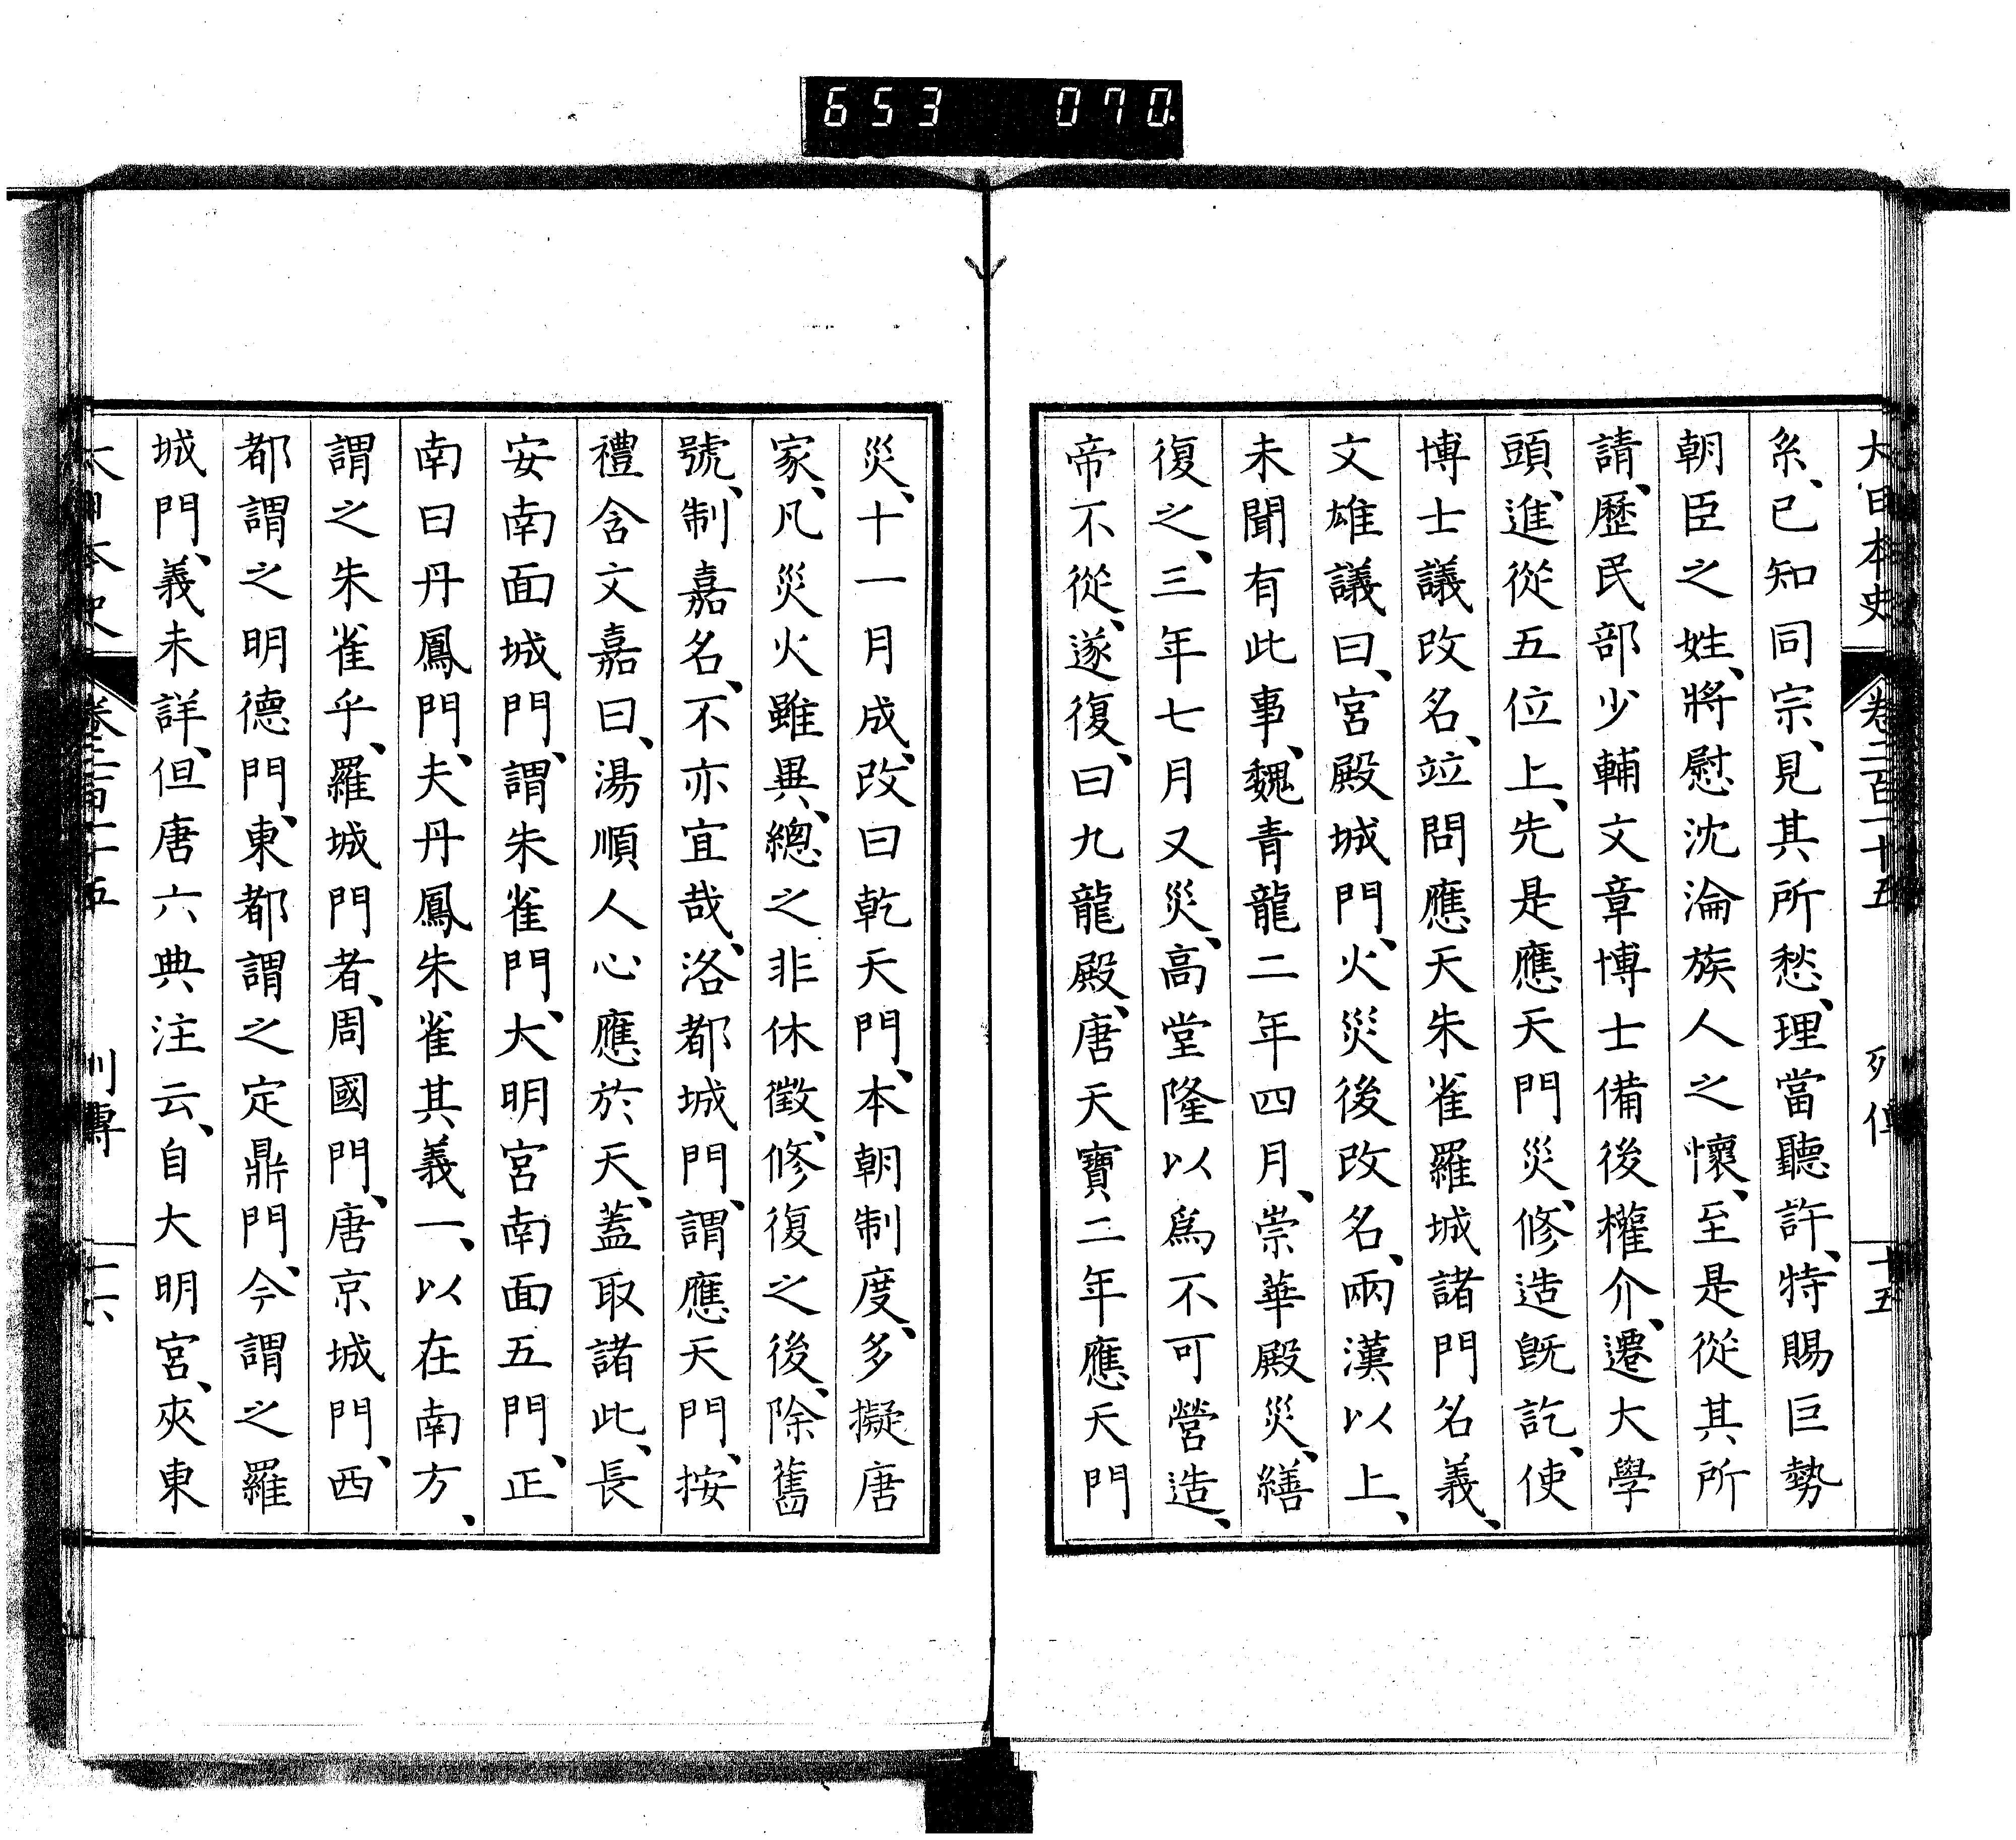 653 070
大日本史 卷二百一十五 列傳 十五
系、已知同宗、見其所愁、理當聽許、特賜巨勢
朝臣之姓、將慰沈淪族人之懷、至是從其所
請、歷民部少輔文章博士備後權介、遷大學
頭、進從五位上、先是應天門災、修造既訖、使
博士議改名、竝問應天朱雀羅城諸門名義、
文雄議曰、宮殿城門、火災後改名、兩漢以上、
未聞有此事、魏青龍二年四月、崇華殿災、繕
復之、三年七月又災、高堂隆以爲不可營造、
帝不從、遂復、曰九龍殿、唐天寶二年應天門
災、十一月成、改曰乾天門、本朝制度、多擬唐
家、凡災火雖異、總之非休徵、修復之後、除舊
號、制嘉名、不亦宜哉、洛都城門、謂應天門、按
禮含文嘉曰、湯順人心應於天、蓋取諸此、長
安南面城門、謂朱雀門、大明宮南面五門、正
南曰丹鳳門、夫丹鳳朱雀其義一、以在南方、
謂之朱雀乎、羅城門者、周國門、唐京城門、西
都謂之明德門、東都謂之定鼎門、今謂之羅
城門、義未詳、但唐六典注云、自大明宮、夾東
大日本史 卷二百一十五 列傳 十六